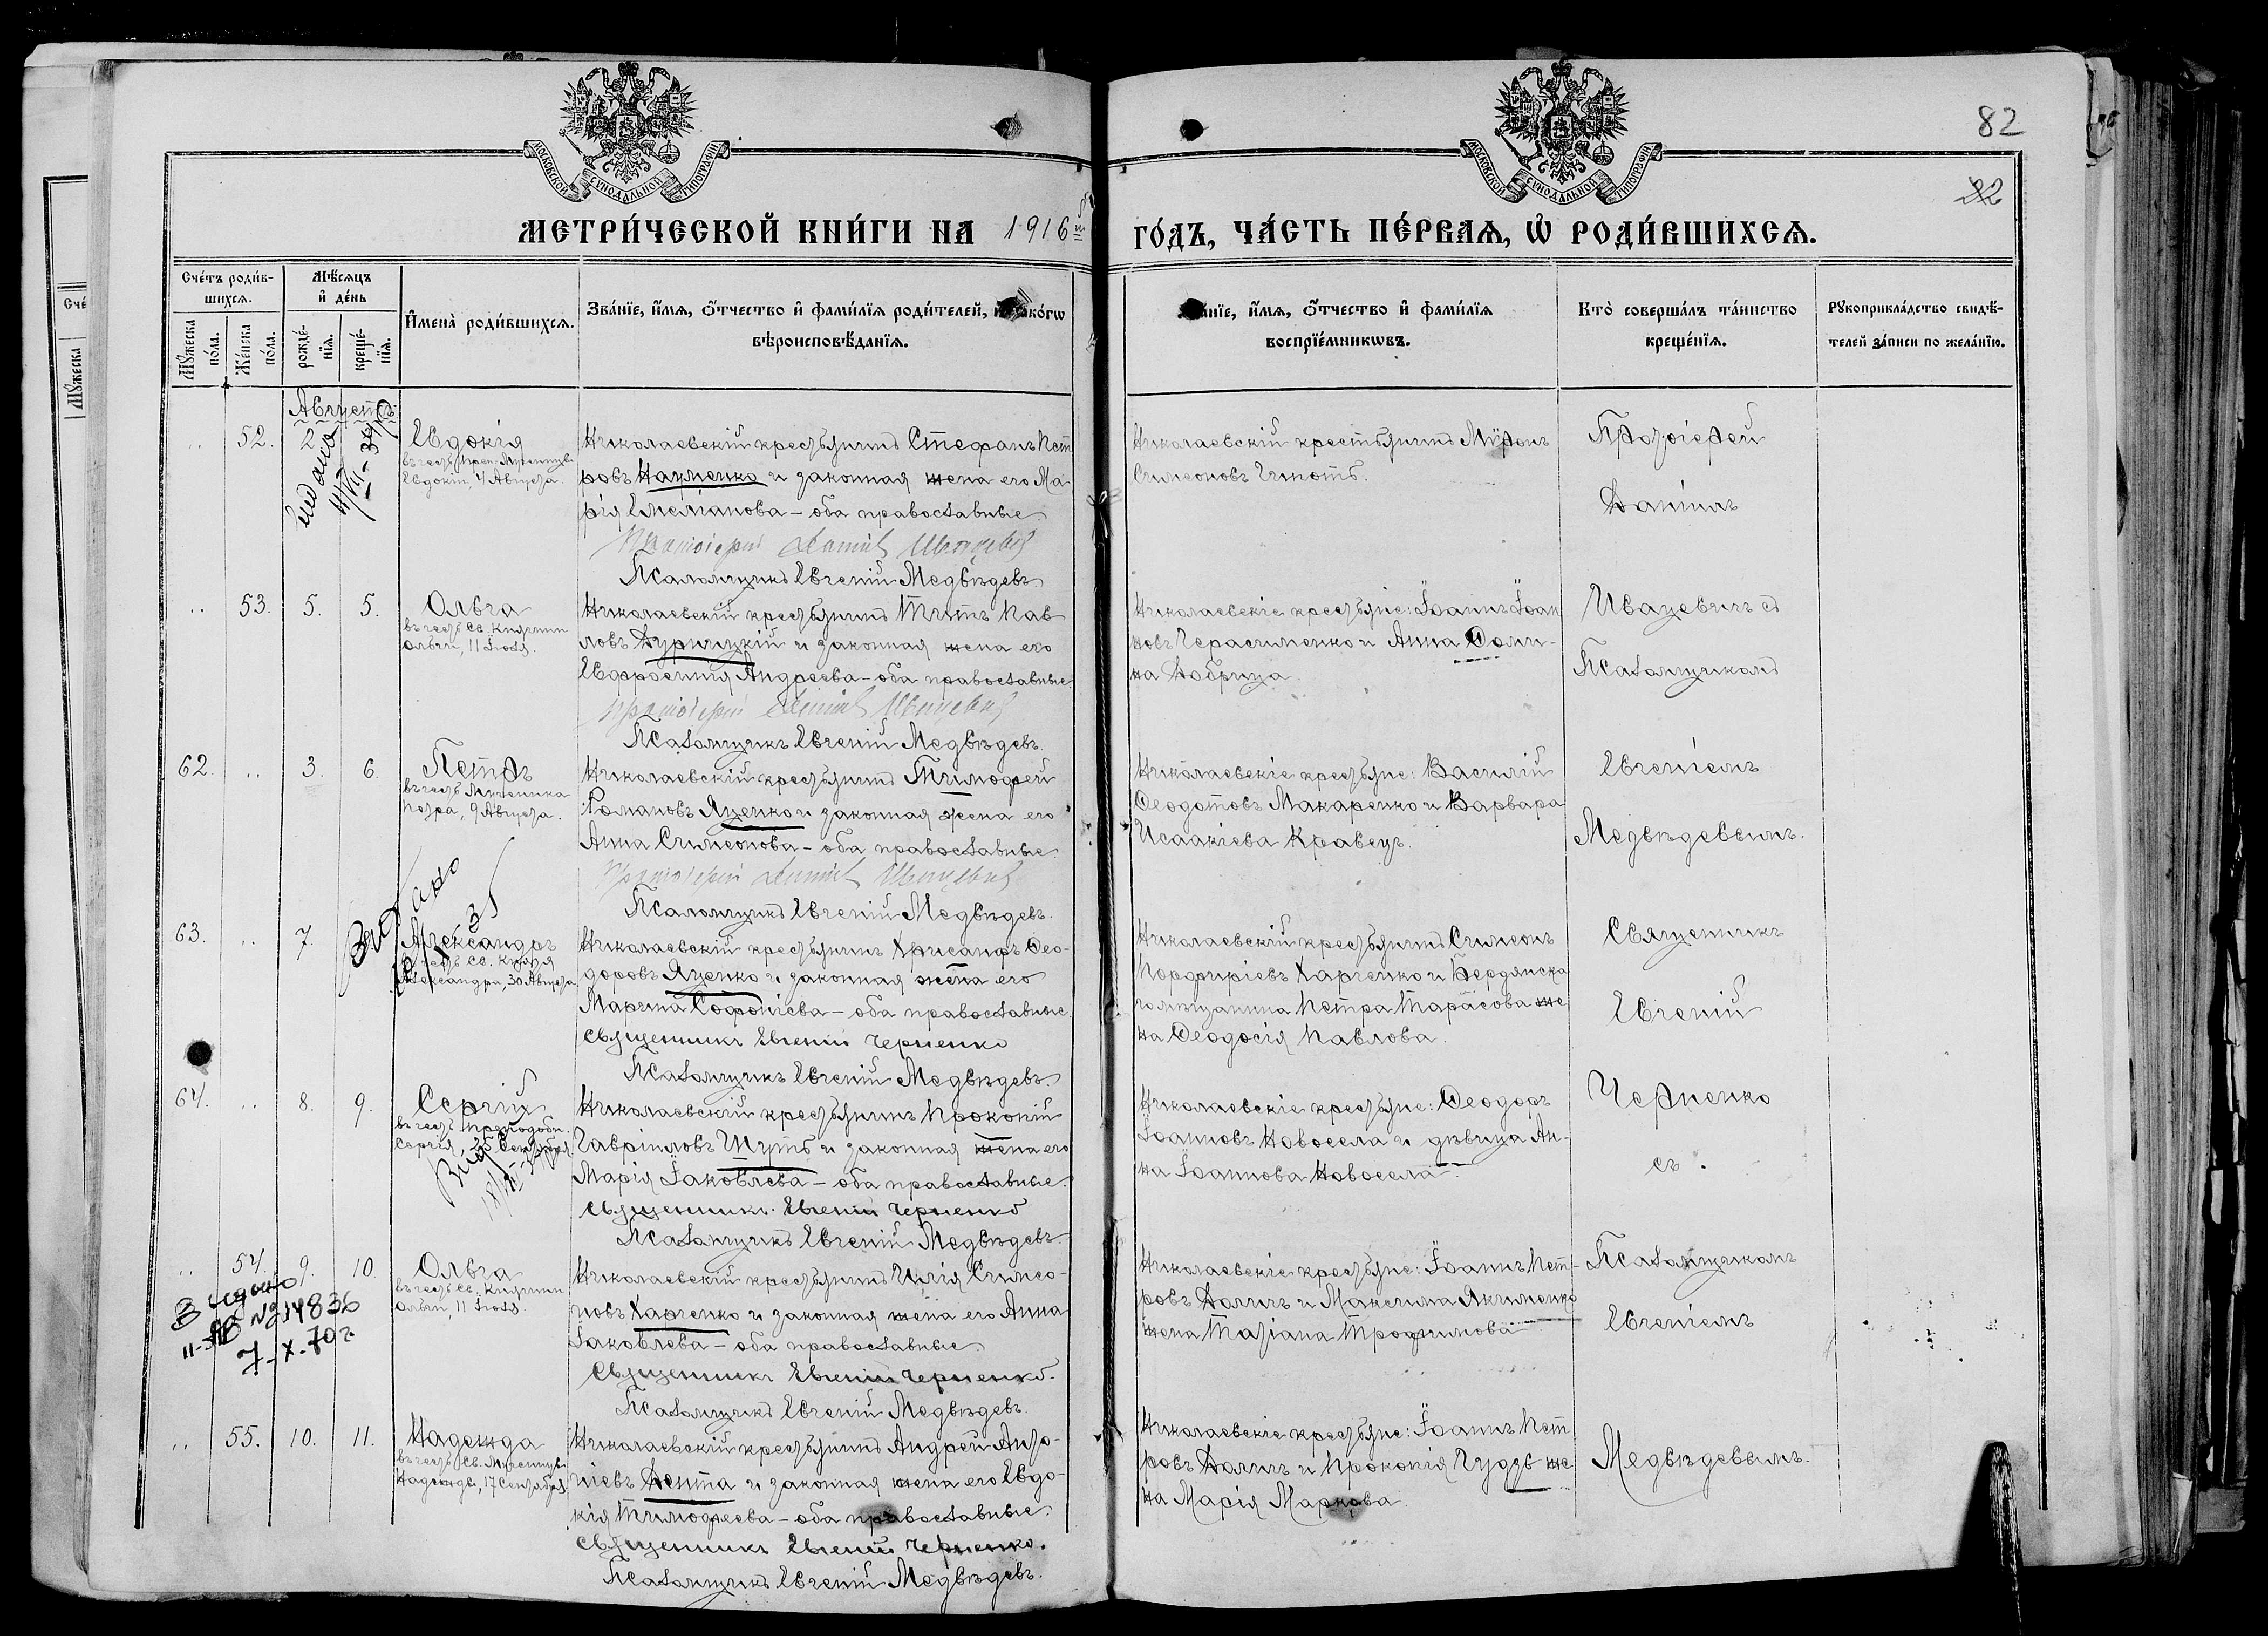 82
22
МОСКОВСКОЙ СѴНОДАЛЬНОЙ ТИПОГРАФІИ
МОСКОВСКОЙ СѴНОДАЛЬНОЙ ТИПОГРАФІИ
МЕТРИ́ЧЕСКОЙ КНИ́ГИ НА 1916 й
ГО́ДЪ, ЧА́СТЬ ПЕ́РВАѦ, Ѡ҆ РОДИ́ВШИХСѦ.
Сче́тъ роди́в-
шихсѧ.
Мꙋ́жеска по́ла.
Же́нска по́ла.
Мѣ́сѧцъ и҆ де́нь
рожде́-нїѧ.
креще́-нїѧ.
И҆мена̀ роди́вшихсѧ.
Зва́нїе, и҆́мѧ, ѻ҆́тчество и҆ фами́лїѧ роди́телей,
вѣроисповѣ́данїѧ.
и҆́мѧ, ѻ҆́тчество и҆ фами́лїѧ
воспрїе́мникѡвъ.
Кто̀ соверша́лъ та́инство
креще́нїѧ.
Рꙋкоприкла́дство свидѣ́-
телей за́писи по жела́нїю.
Августъ
52. 2
Евдокія
въ честь Прп. Мученицы
Евдокіи, 4 Августа.
Николаевскій крестьянинъ Стефанъ Пет
ровъ Науменко и законная жена его Ма
рія Емеліанова – оба православные
Протоіерей Даніилъ Ивацевичъ
Псаломщикъ Евгеній Медвѣдевъ
Николаевскій крестьянинъ Мѵронъ
Симеоновъ
Протоіерей
Даніилъ
53. 5. 5.
Ольга
въ честь Св. Княгини
Ольги, 11 Іюля.
Николаевскій крестьянинъ Титъ Пав
ловъ и законная жена его
Евфросинія Андреева – оба православные.
Протоіерей Даніилъ Ивацевичъ
Псаломщикъ Евгеній Медвѣдевъ.
Николаевскіе крестьяне: Іоаннъ Іоан
новъ Герасименко и Анна Ѳоми-
на Добрица.
Ивацевичъ съ
Псаломщикомъ
62. 3. 6.
Петръ
въ честь Мученика
Петра, 9 Августа.
Николаевскій крестьянинъ Тимофей
Романовъ Яценко и законная жена его
Анна Симеонова – оба православные.
Протоіерей Даніилъ Ивацевичъ
Псаломщикъ Евгеній Медвѣдевъ.
Николаевскіе крестьяне: Василій
Ѳеодотовъ Макаренко и Варвара
Исаакіева Кравецъ.
Евгеніемъ
Медвѣдевымъ.
Видано
63. 7.
Александръ
въ честь Св. Князя
Александра, 30 Августа
Николаевскій крестьянинъ Хрисанфъ Ѳео-
доровъ Яценко и законная жена его
Марина Софоніева – оба православные.
Священникъ Евгеній Черненко
Псаломщикъ Евгеній Медвѣдевъ.
Николаевскій крестьянинъ Симеонъ
Порфиріевъ Харченко и Бердянска
го мѣщанина Петра Тарасова же
на Ѳеодосія Павлова.
Священникъ
Евгеній
64. 8. 9.
Сергій
въ честь Преподобн.
Сергія, 25 Сентября.
Николаевскій крестьянинъ Прокопій
Гавріиловъ Шутъ и законная жена его
Марія Іаковлева – оба православные.
Священникъ Евгеній Черненко
Псаломщикъ Евгеній Медвѣдевъ.
Николаевскіе крестьяне: Ѳеодоръ
Іоанновъ Новосела и дѣвица Ан-
на Іоаннова Новосела.
Черненко
съ
54. 9. 10.
Ольга
въ честь Св. Княгини
Ольги, 11 Іюля.
№ 214836
7-X-70 г
Николаевскій крестьянинъ Илія Симео-
новъ Харченко и законная жена его Анна
Іаковлева – оба православные
Священникъ Евгеній Черненко.
Псаломщикъ Евгеній Медвѣдевъ.
Николаевскіе крестьяне: Іоаннъ Пет-
ровъ Долинъ и Максима Якименко
жена Татіана Трофимова
Псаломщикомъ
Евгеніемъ
55. 10. 11.
Надежда
въ честь Св. Мученицы
Надежды, 17 Сентября
Николаевскій крестьянинъ Андрей Анто-
ніевъ Дента и законная жена его Евдо-
кія Тимофеева – оба православные.
Священникъ Евгеній Черненко.
Псаломщикъ Евгеній Медвѣдевъ.
Николаевскіе крестьяне: Іоаннъ Пет
ровъ Долинъ и Прокопія Гудзь же
на Марія Маркова.
Медвѣдевымъ.